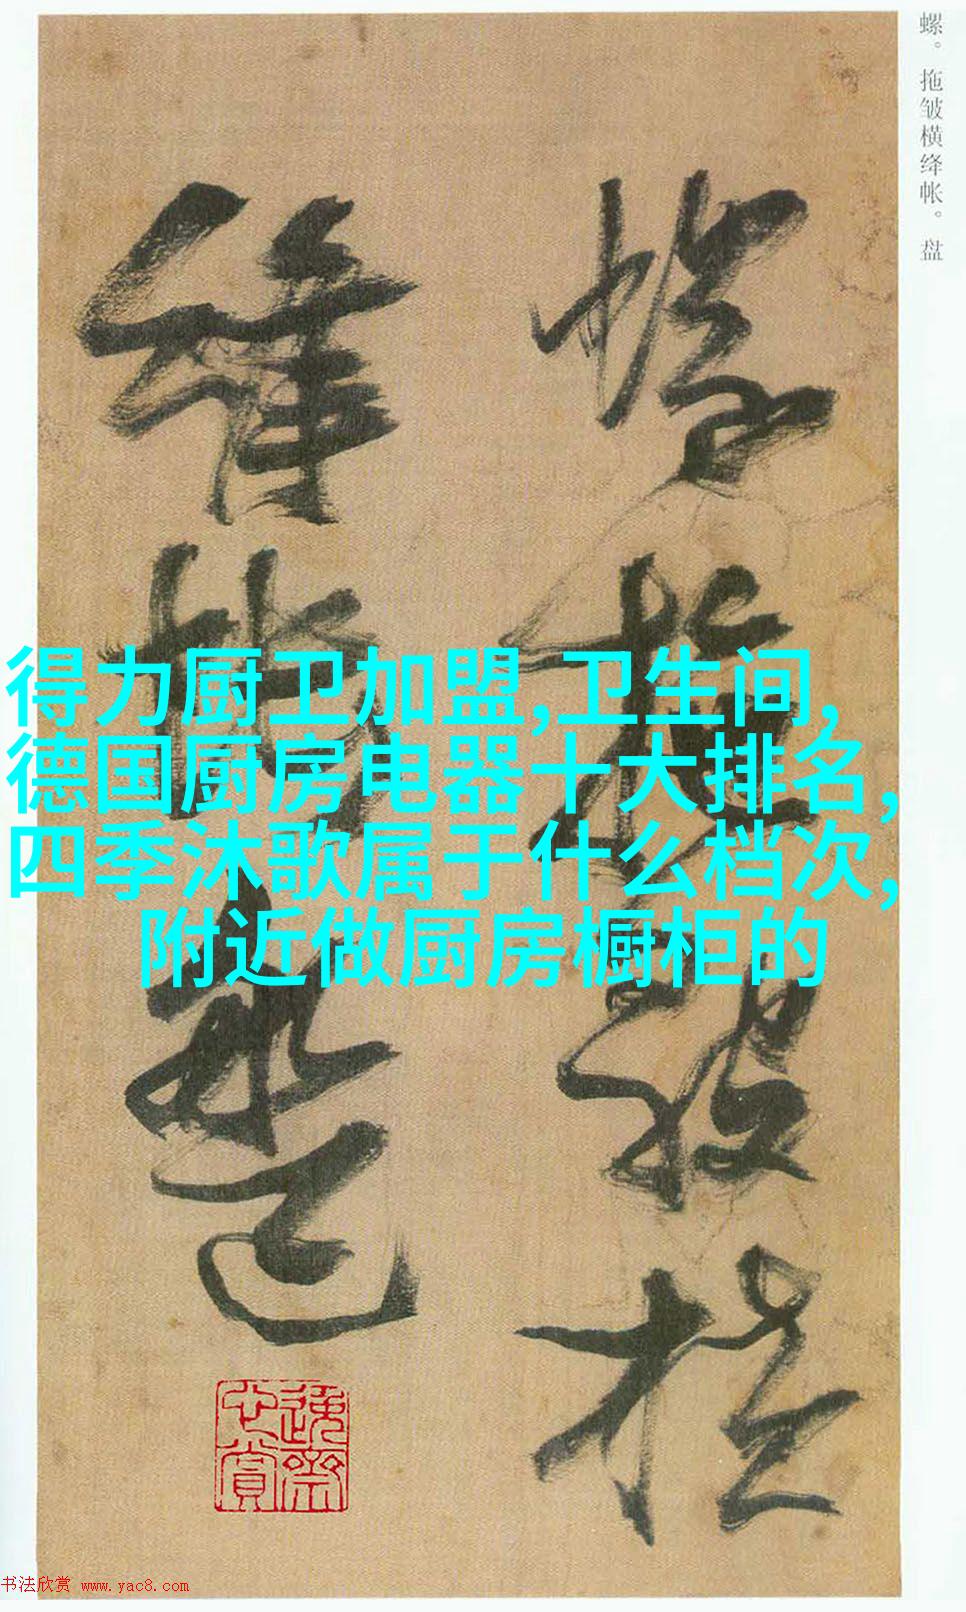 螺。拖皱横绛帐。盘
螺拖皱横
绛帐盘
得力厨卫加盟,卫生间,
德国厨房电器十大排名,
四季沐歌属于什么档次,
附近做厨房橱柜的
书法欣赏 www.yac8.com